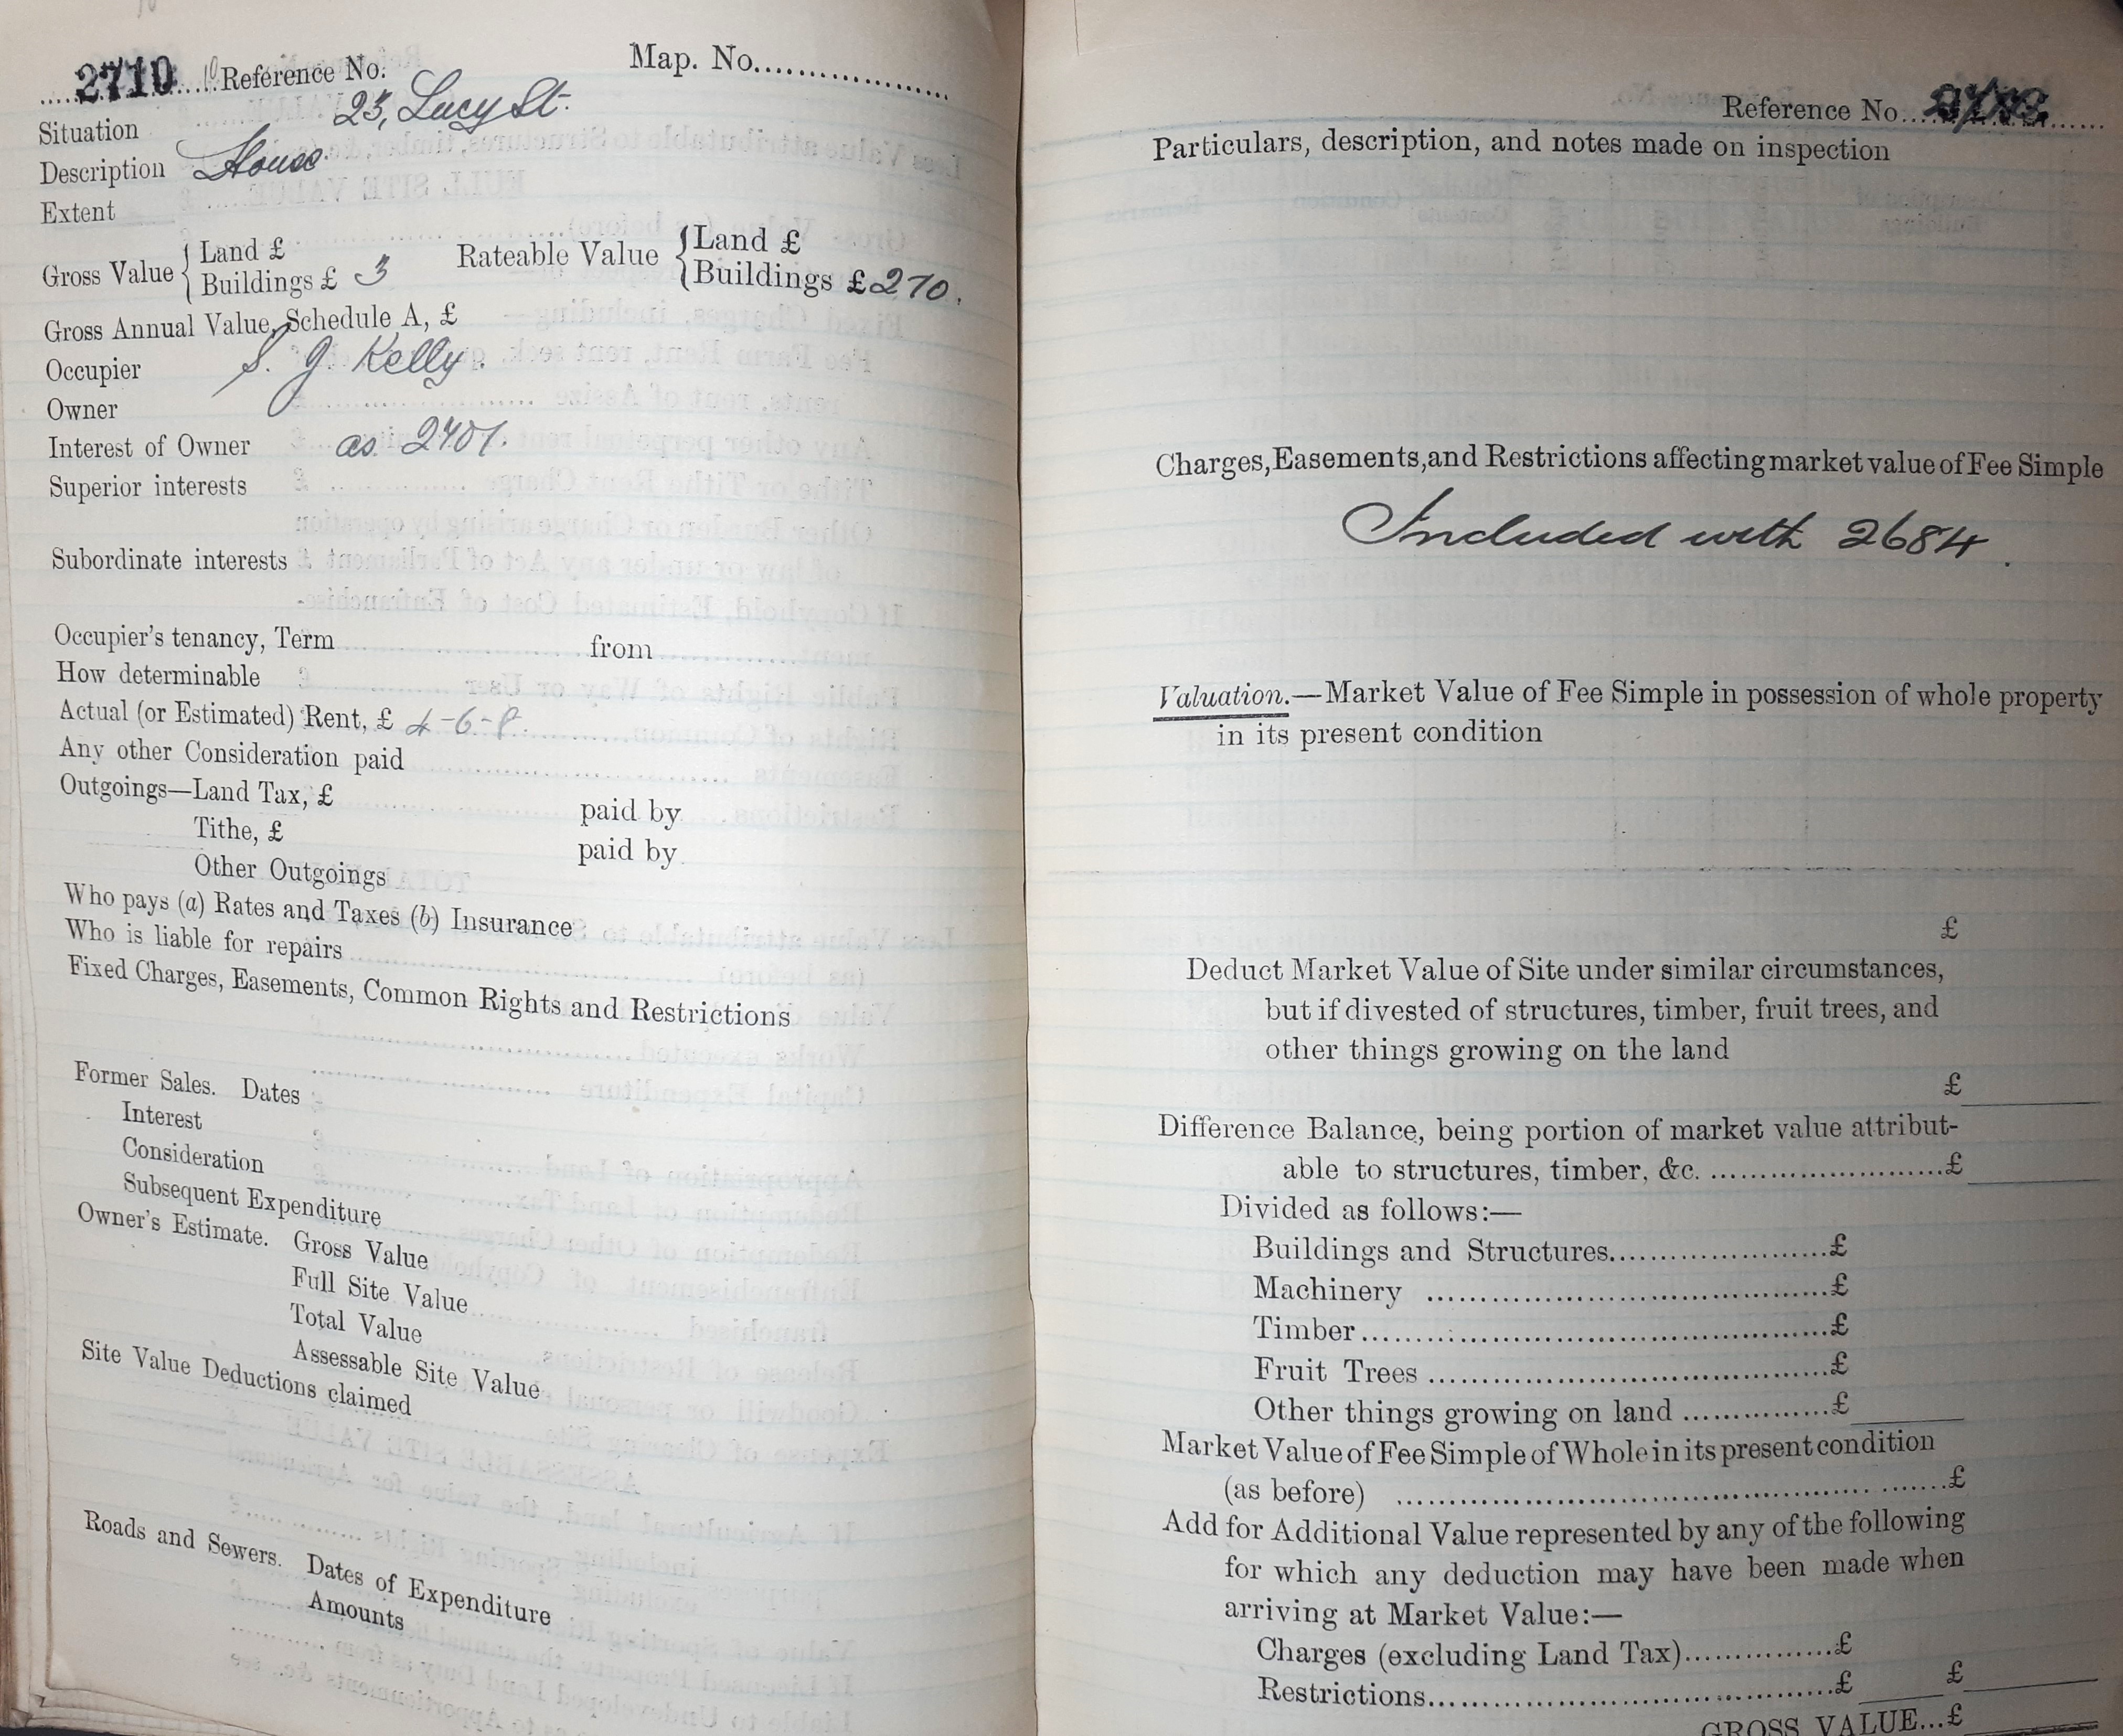 2710 Reference No. Map. No.
Situation 23, Lucy St.
Description House
Extent
Gross Value { Land £ Rateable Value { Land £
Buildings £ 3 Buildings £ 2 70.
Gross Annual Value, Schedule A, £
Occupier S. J. Kelly.
Owner
Interest of Owner as 2701.
Superior interests
Subordinate interests
Occupier's tenancy, Term from
How determinable
Actual (or Estimated) Rent, £ 4-6-8.
Any other Consideration paid
Outgoings—Land Tax, £ paid by
Tithe, £ paid by
Other Outgoings
Who pays (a) Rates and Taxes (b) Insurance
Who is liable for repairs
Fixed Charges, Easements, Common Rights and Restrictions
Former Sales. Dates
Interest
Consideration
Subsequent Expenditure
Owner's Estimate. Gross Value
Full Site Value
Total Value
Assessable Site Value
Site Value Deductions claimed
Roads and Sewers. Dates of Expenditure
Amounts
Reference No.
Particulars, description, and notes made on inspection
Charges, Easements, and Restrictions affecting market value of Fee Simple
Included with 2684.
Valuation.—Market Value of Fee Simple in possession of whole property
in its present condition
£
Deduct Market Value of Site under similar circumstances,
but if divested of structures, timber, fruit trees, and
other things growing on the land
£
Difference Balance, being portion of market value attribut-
able to structures, timber, &c. ........................£
Divided as follows:—
Buildings and Structures......................£
Machinery ........................................£
Timber..............................................£
Fruit Trees ........................................£
Other things growing on land ...............£
Market Value of Fee Simple of Whole in its present condition
(as before) ........................................................£
Add for Additional Value represented by any of the following
for which any deduction may have been made when
arriving at Market Value:—
Charges (excluding Land Tax)...............£
Restrictions........................................£ £
GROSS VALUE...£